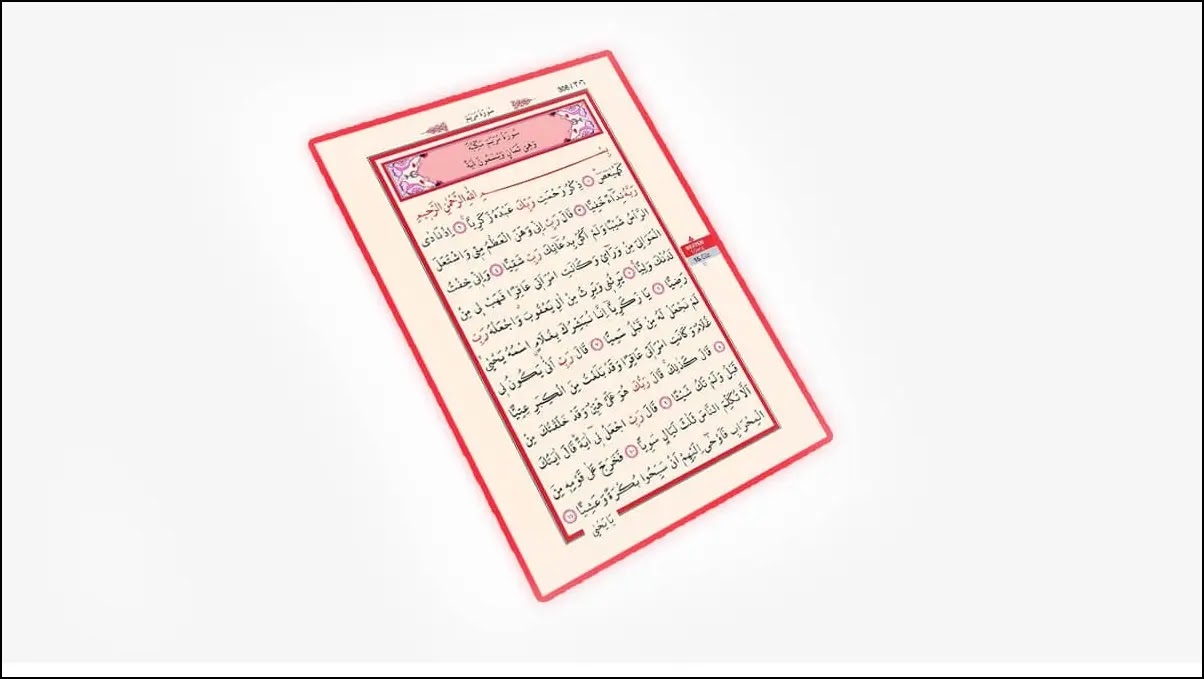 306 / ٣٠٦
سُورَةُ مَرْيَمَ
سُورَةُ مَرْيَمَ مَكِّيَّةٌ
وَهِيَ ثَمَانٍ وَتِسْعُونَ اٰيَةً
بِسْمِ اللّٰهِ الرَّحْمٰنِ الرَّحِيمِ
كٓهٰيٰعٓصٓ ۝١ ذِكْرُ رَحْمَتِ رَبِّكَ عَبْدَهُ زَكَرِيَّا ۝٢ اِذْ نَادٰى
رَبَّهُ نِدَٓاءً خَفِيًّا ۝٣ قَالَ رَبِّ اِنّٖى وَهَنَ الْعَظْمُ مِنّٖى وَاشْتَعَلَ
الرَّأْسُ شَيْبًا وَلَمْ اَكُنْ بِدُعَٓائِكَ رَبِّ شَقِيًّا ۝٤ وَاِنّٖى خِفْتُ
الْمَوَالِىَ مِنْ وَرَٓاءٖى وَكَانَتِ امْرَاَتٖى عَاقِرًا فَهَبْ لٖى مِنْ
لَدُنْكَ وَلِيًّا ۝٥ يَرِثُنٖى وَيَرِثُ مِنْ اٰلِ يَعْقُوبَ وَاجْعَلْهُ رَبِّ
رَضِيًّا ۝٦ يَا زَكَرِيَّا اِنَّا نُبَشِّرُكَ بِغُلَامٍ اسْمُهُ يَحْيٰى
لَمْ نَجْعَلْ لَهُ مِنْ قَبْلُ سَمِيًّا ۝٧ قَالَ رَبِّ اَنّٰى يَكُونُ لٖى
غُلَامٌ وَكَانَتِ امْرَاَتٖى عَاقِرًا وَقَدْ بَلَغْتُ مِنَ الْكِبَرِ عِتِيًّا
۝٨ قَالَ كَذٰلِكَ قَالَ رَبُّكَ هُوَ عَلَىَّ هَيِّنٌ وَقَدْ خَلَقْتُكَ مِنْ
قَبْلُ وَلَمْ تَكُ شَيْئًا ۝٩ قَالَ رَبِّ اجْعَلْ لٖى اٰيَةً قَالَ اٰيَتُكَ
اَلَّا تُكَلِّمَ النَّاسَ ثَلٰثَ لَيَالٍ سَوِيًّا ۝١٠ فَخَرَجَ عَلٰى قَوْمِهٖ مِنَ
الْمِحْرَابِ فَاَوْحٰٓى اِلَيْهِمْ اَنْ سَبِّحُوا بُكْرَةً وَعَشِيًّا ۝١١
يَا يَحْيٰى